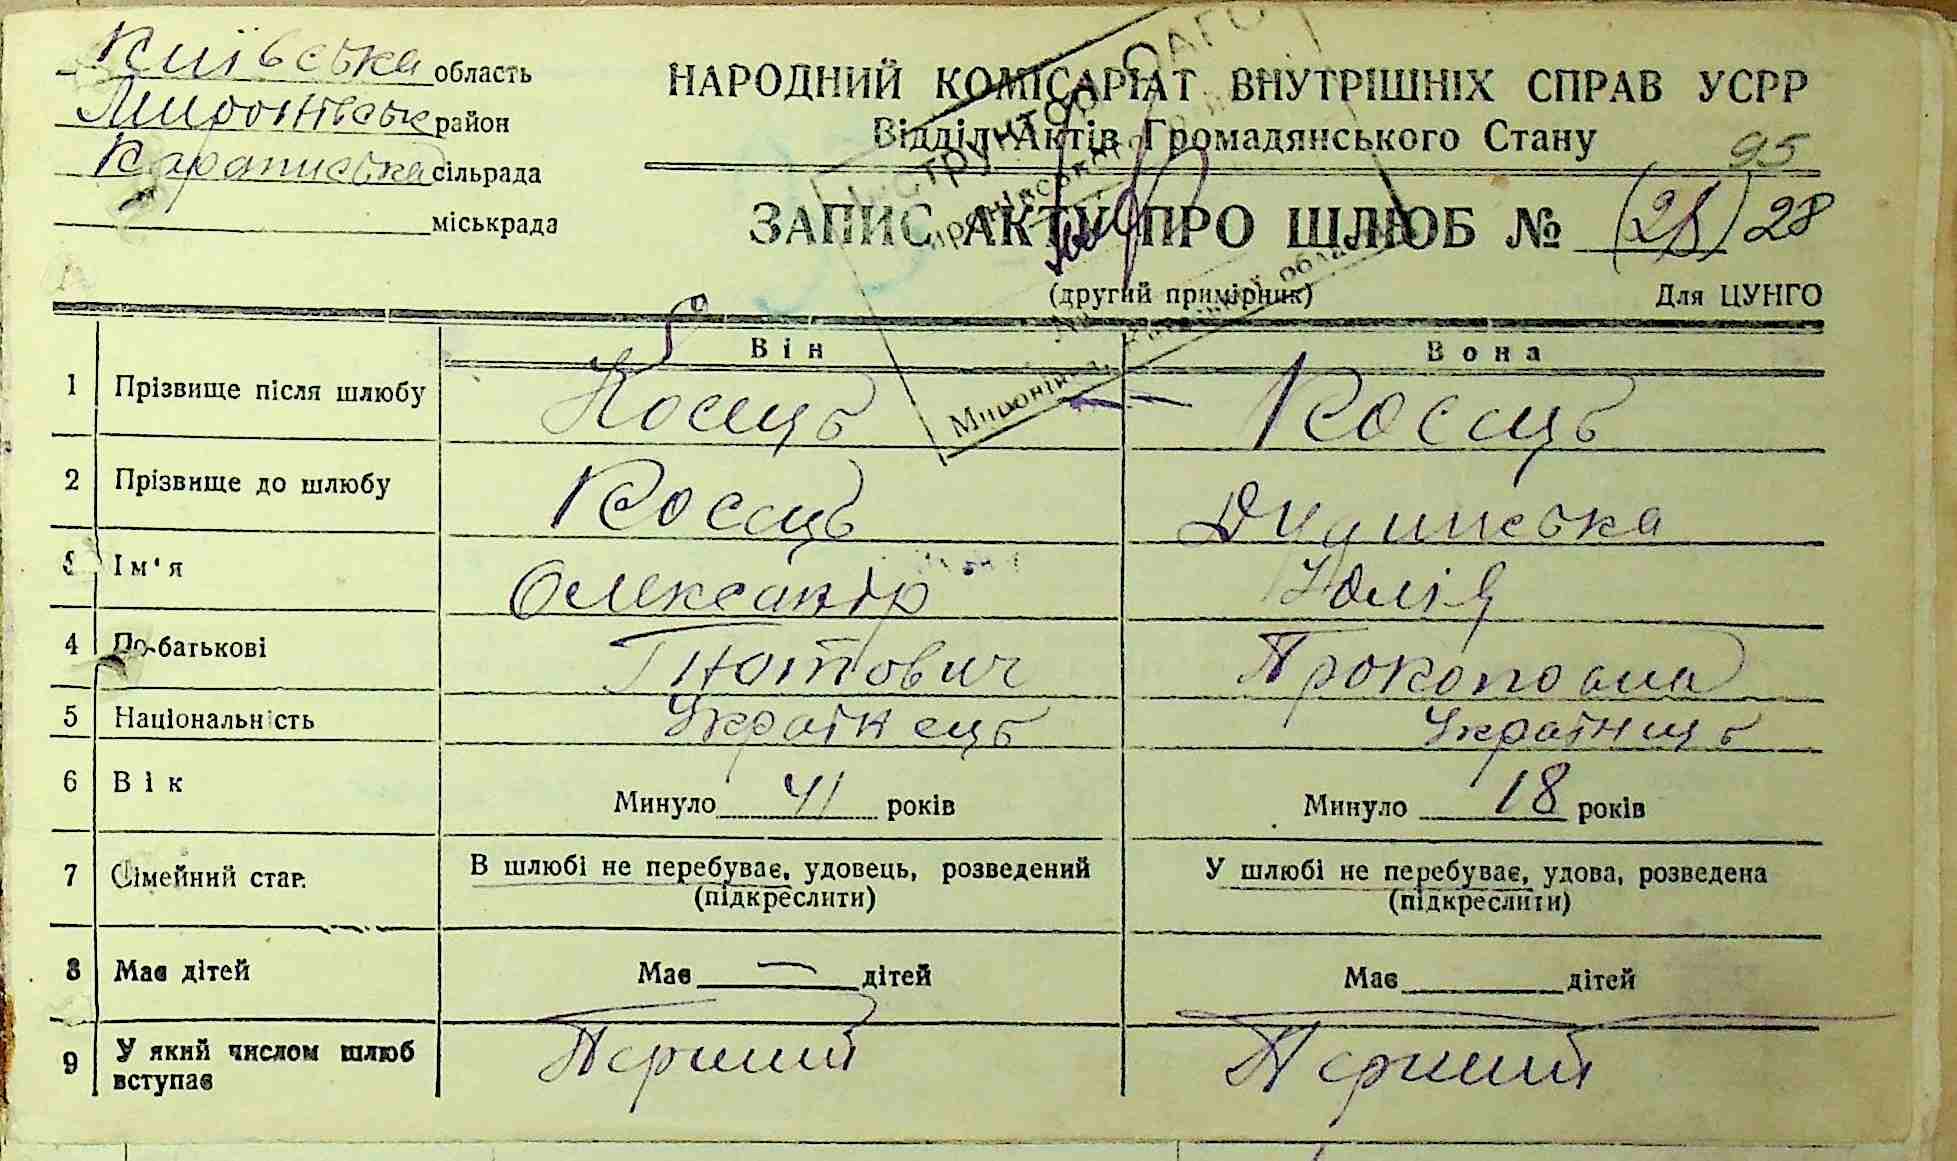 Київська область
Миронівськ район
Караписька сільрада
міськрада
НАРОДНИЙ КОМІСАРІАТ ВНУТРІШНІХ СПРАВ УСРР
Відділ Актів Громадянського Стану
95
ЗАПИС АКТУ ПРО ШЛЮБ № (28) 28
(другий примірник)
Для ЦУНГО
Він Вона
1 Прізвище після шлюбу Косець Косець
2 Прізвище до шлюбу Косець Дудинська
3 Ім'я Олександр Юлія
4 По-батькові Гнатович Прокоповна
5 Національність Українець Українць
6 Вік Минуло 41 років Минуло 18 років
7 Сімейний стан В шлюбі не перебуває, удовець, розведений (підкреслити) У шлюбі не перебуває, удова, розведена (підкреслити)
8 Має дітей Має — дітей Має дітей
9 У який числом шлюб вступає Перший Перший